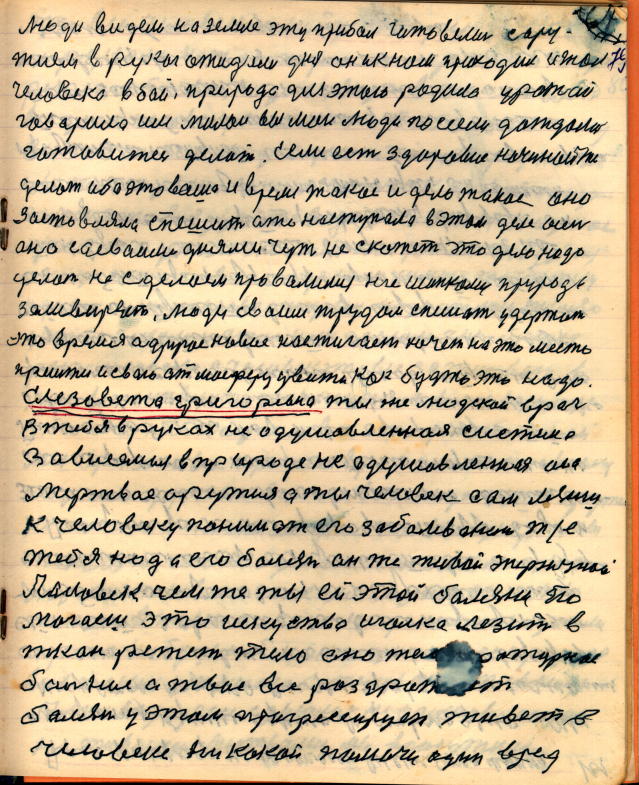 Люди видели на земле эту прибал готовели сару-
жием в руках ожидали дня он к ним приходил и
человека в бой, природа для этого родила урожай
гаварила им мои люди посеели дождали
готовитес делат. Если ест здоровие начинайти
делат оба это ваше и время такое и дело такое оно
заставляла спешит оно наступала в этом деле
оно с сваими днями чут не скажет это дело надо
делат не сделаем провалимся природе
люди сваим трудом спешат удержат
это время а другое новае настигает хочет на это место
прийти и сваю атмосферу цвити как будто это надо.
Елезовета григоревна ты же людской врач
В тебя в руках не одушовленная система
Зависемия в природе не одушовленная она
Мертвае оружия а ты человек сам
к человеку понимат его забалевании
тебя нада его балезн он же живой энергичной
человек чем же ты ей этой балезни по
могаеш это искуство иголка лезит в
ткан режет тело оно
балное а твае все раздражает
балезн у этом прагрессируеи живет в
человеке никакой помочи один вред